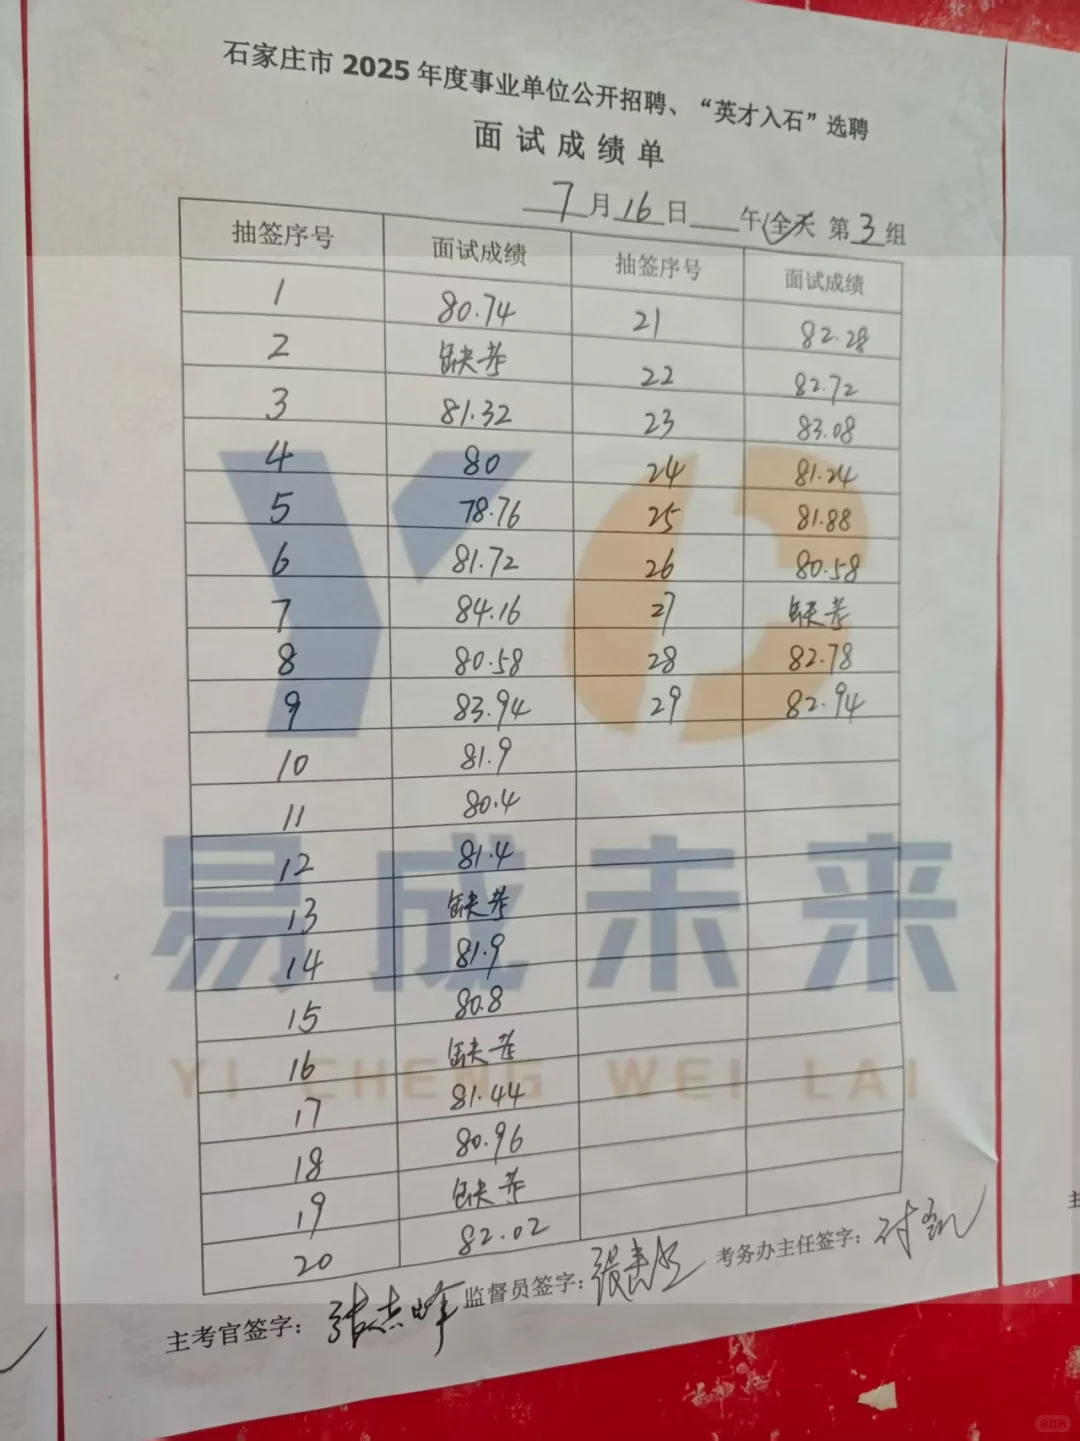 石家庄市 2025 年度事业单位公开招聘、“英才入石”选聘
面试成绩单
7月16日___午(全天 第3组
抽签序号 面试成绩 抽签序号 面试成绩
1 80.74 21 82.28
2 缺考 22 82.72
3 81.32 23 83.08
4 80 24 81.24
5 78.76 25 81.88
6 81.72 26 80.58
7 84.16 27 缺考
8 80.58 28 82.78
9 83.94 29 82.94
10 81.9
11 80.4
12 81.4
13 缺考
14 81.9
15 80.8
16 缺考
17 81.44
18 80.96
19 缺考
20 82.02
主考官签字： 张志峰 监督员签字： 考务办主任签字：
YC
易成未来
YI CHENG WEI LAI
小红书